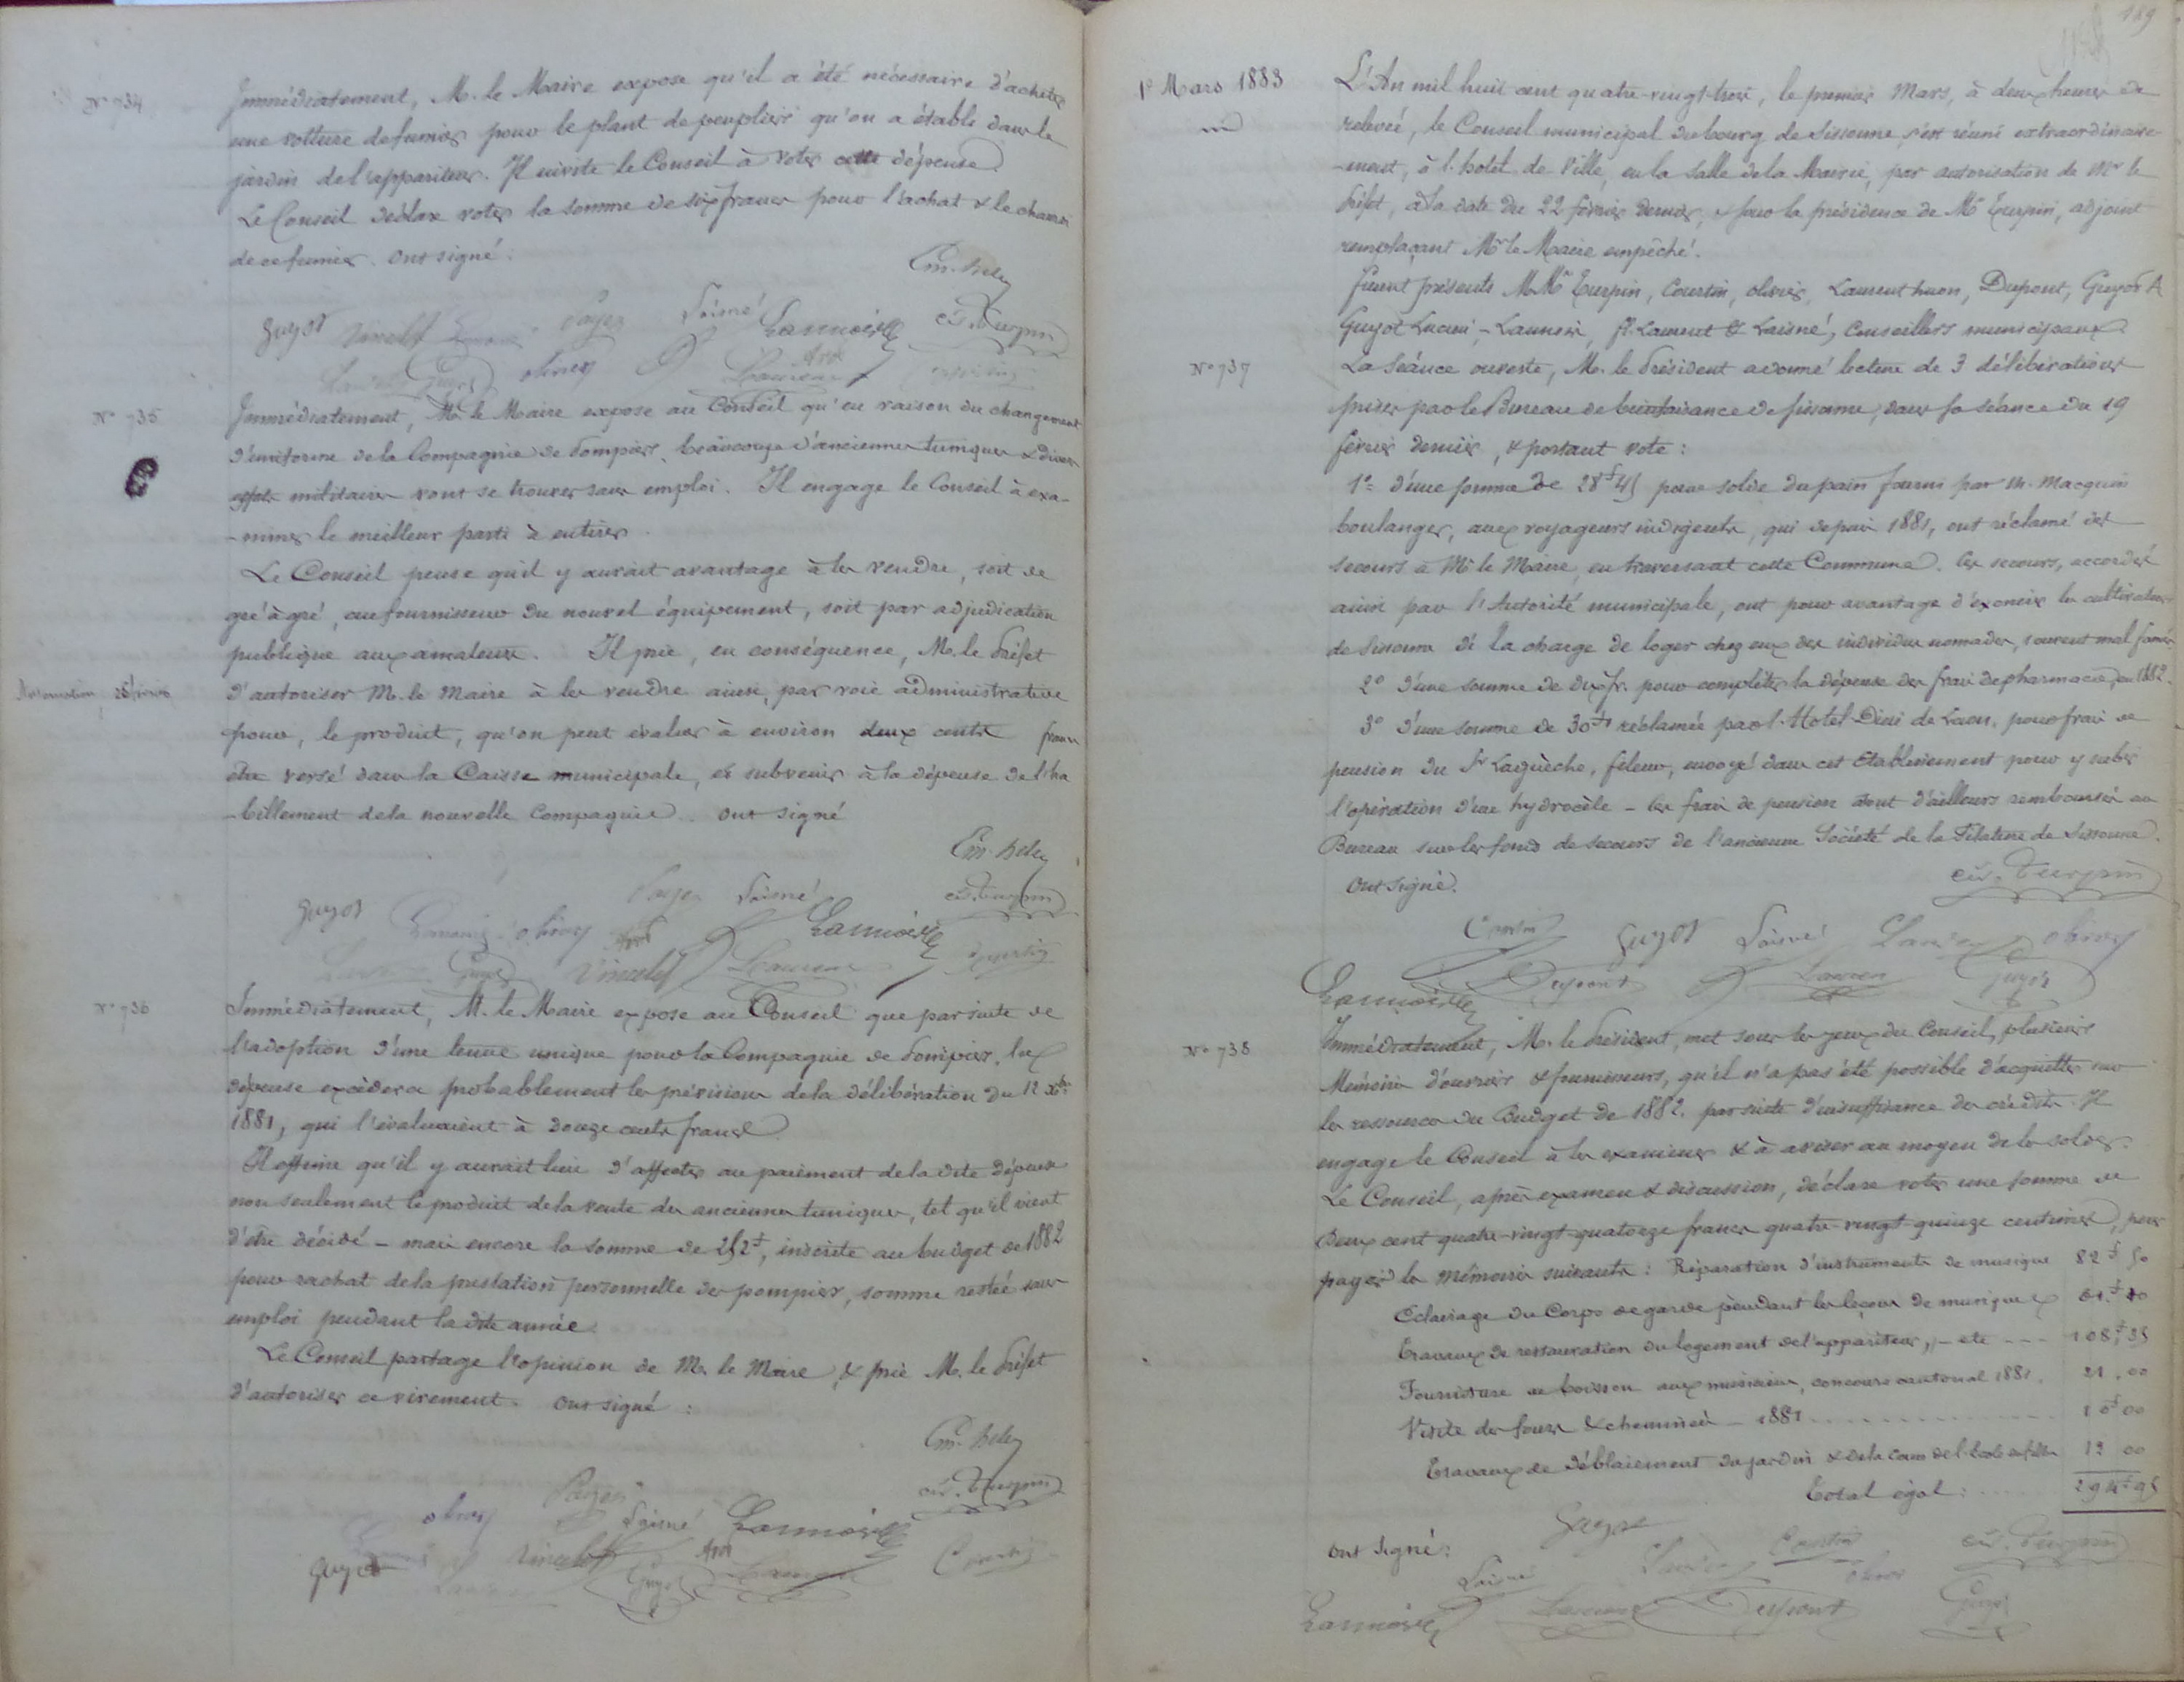 N° 734
Immédiatement, M. le Maire expose qu'il a été nécessaire d'acheter
une voiture de fumier pour le plant de peupliers qu'on a établi dans le
jardin de l'appariteur. Il invite le Conseil à voter cette dépense.
Le Conseil déclare voter la somme de six francs pour l'achat & le charroi
de ce fumier. Ont signé :
Guyot Vincelet Payen Laisné Lannois Ed. Turpin
Guyot olivier Laurent
N° 735
Immédiatement, M. le Maire expose au Conseil qu'en raison du changement
d'uniforme de la Compagnie de Pompiers, beaucoup d'anciennes tuniques & divers
effets militaires vont se trouver sans emploi. Il engage le Conseil à exa-
-miner le meilleur parti à en tirer.
Le Conseil pense qu'il y aurait avantage à les vendre, soit de
gré à gré, au fournisseur du nouvel équipement, soit par adjudication
publique aux amateurs. Il prie, en conséquence, M. le Préfet
d'autoriser M. le Maire à les vendre ainsi, par voie administrative
pour, le produit, qu'on peut évaluer à environ deux cents francs
être versé dans la Caisse municipale, et subvenir à la dépense de l'ha
-billement de la nouvelle Compagnie. Ont signé
Payen Laisné Ed. Turpin
Guyot olivier Lannois
Guyot Vincelet Laurent Courtin
N° 736
Immédiatement, M. le Maire expose au Conseil que par suite de
l'adoption d'une tenue unique pour la Compagnie de Pompiers, la
dépense excèdera probablement les prévisions de la délibération du 12 Xbre
1881, qui l'évaluaient à douze cents francs.
Il estime qu'il y aurait lieu d'affecter au paiement de la dite dépense
non seulement le produit de la vente des anciennes tuniques, tel qu'il vient
d'être décidé - mais encore la somme de 252f, inscrite au budget de 1882
pour rachat de la prestation personnelle des pompiers, somme restée sans
emploi pendant la dite année.
Le Conseil partage l'opinion de M. le Maire, & prie M. le Préfet
d'autoriser ce virement. Ont signé :
olivier Payen Laisné Lannois Ed. Turpin
Guyot Vincelet Guyot Laurent Courtin
189
1er Mars 1883
L'An mil huit cent quatre-vingt-trois, le premier Mars, à deux heures de
relevée, le Conseil municipal du bourg de Sissonne, s'est réuni extraordinaire-
-ment, à l'hôtel de Ville, en la salle de la Mairie, par autorisation de Mr le
Préfet, à la date du 22 février dernier, & sous la présidence de Mr Turpin, adjoint
remplaçant Mr le Maire empêché.
Furent présents M.Mrs Turpin, Courtin, olivier, Laurent huon, Dupont, Guyot A
Guyot Lucien, - Lannois, fl. Laurent & Laisné, Conseillers municipaux.
N° 737
La Séance ouverte, M. le Président a donné lecture de 3 délibérations
prises par le Bureau de bienfaisance de Sissonne, dans sa séance du 19
février dernier, & portant vote :
1° d'une somme de 28f45 pour solde du pain fourni par M. Macquin
boulanger, aux voyageurs indigents, qui depuis 1881, ont réclamé des
secours à Mr le Maire, en traversant cette Commune. Ces secours, accordés
ainsi par l'Autorité municipale, ont pour avantage d'exonérer les cultivateurs
de Sissonne de la charge de loger chez eux des individus nomades, souvent mal famés.
2° d'une somme de dix fr. pour compléter la dépense des frais de pharmacie, en 1882.
3° d'une somme de 30f réclamée par l'Hôtel-Dieu de Laon, pour frais de
pension du Sr Laguèche, fileur, envoyé dans cet Etablissement pour y subir
l'opération d'une hydrocèle - les frais de pension sont d'ailleurs remboursés au
Bureau sur les fonds de secours de l'ancienne Société de la Filature de Sissonne.
Ont signé.
Ed. Turpin
Courtin Guyot Laisné olivier
Lannois Dupont Laurent Guyot
N° 738
Immédiatement, M. le Président, met sous les yeux du Conseil, plusieurs
Mémoires d'ouvriers & fournisseurs, qu'il n'a pas été possible d'acquitter sur
les ressources du Budget de 1882. par suite d'insuffisance de crédits. Il
engage le Conseil à les examiner & à aviser au moyen de les solder.
Le Conseil, après examen & discussion, déclare voter une somme de
Deux cent quatre-vingt-quatorze francs quatre-vingt-quinze centimes, pour
payer les mémoires suivants : Réparation d'instruments de musique 82f50
Eclairage du Corps de garde pendant les leçons de musique
Travaux de restauration du logement de l'appariteur, - etc --- 108f35
Fourniture de boisson aux musiciens, concours cantonal 1881. 21.00
Visite des fours & cheminées - 1881 ........ 10f00
Travaux de déblaiement du jardin & de la Cour de l'Ecole des filles 12 00
Total égal : ..... 294f95
Ont signé :
Guyot Courtin Ed. Turpin
Laisné olivier
Lannois Laurent Dupont Guyot